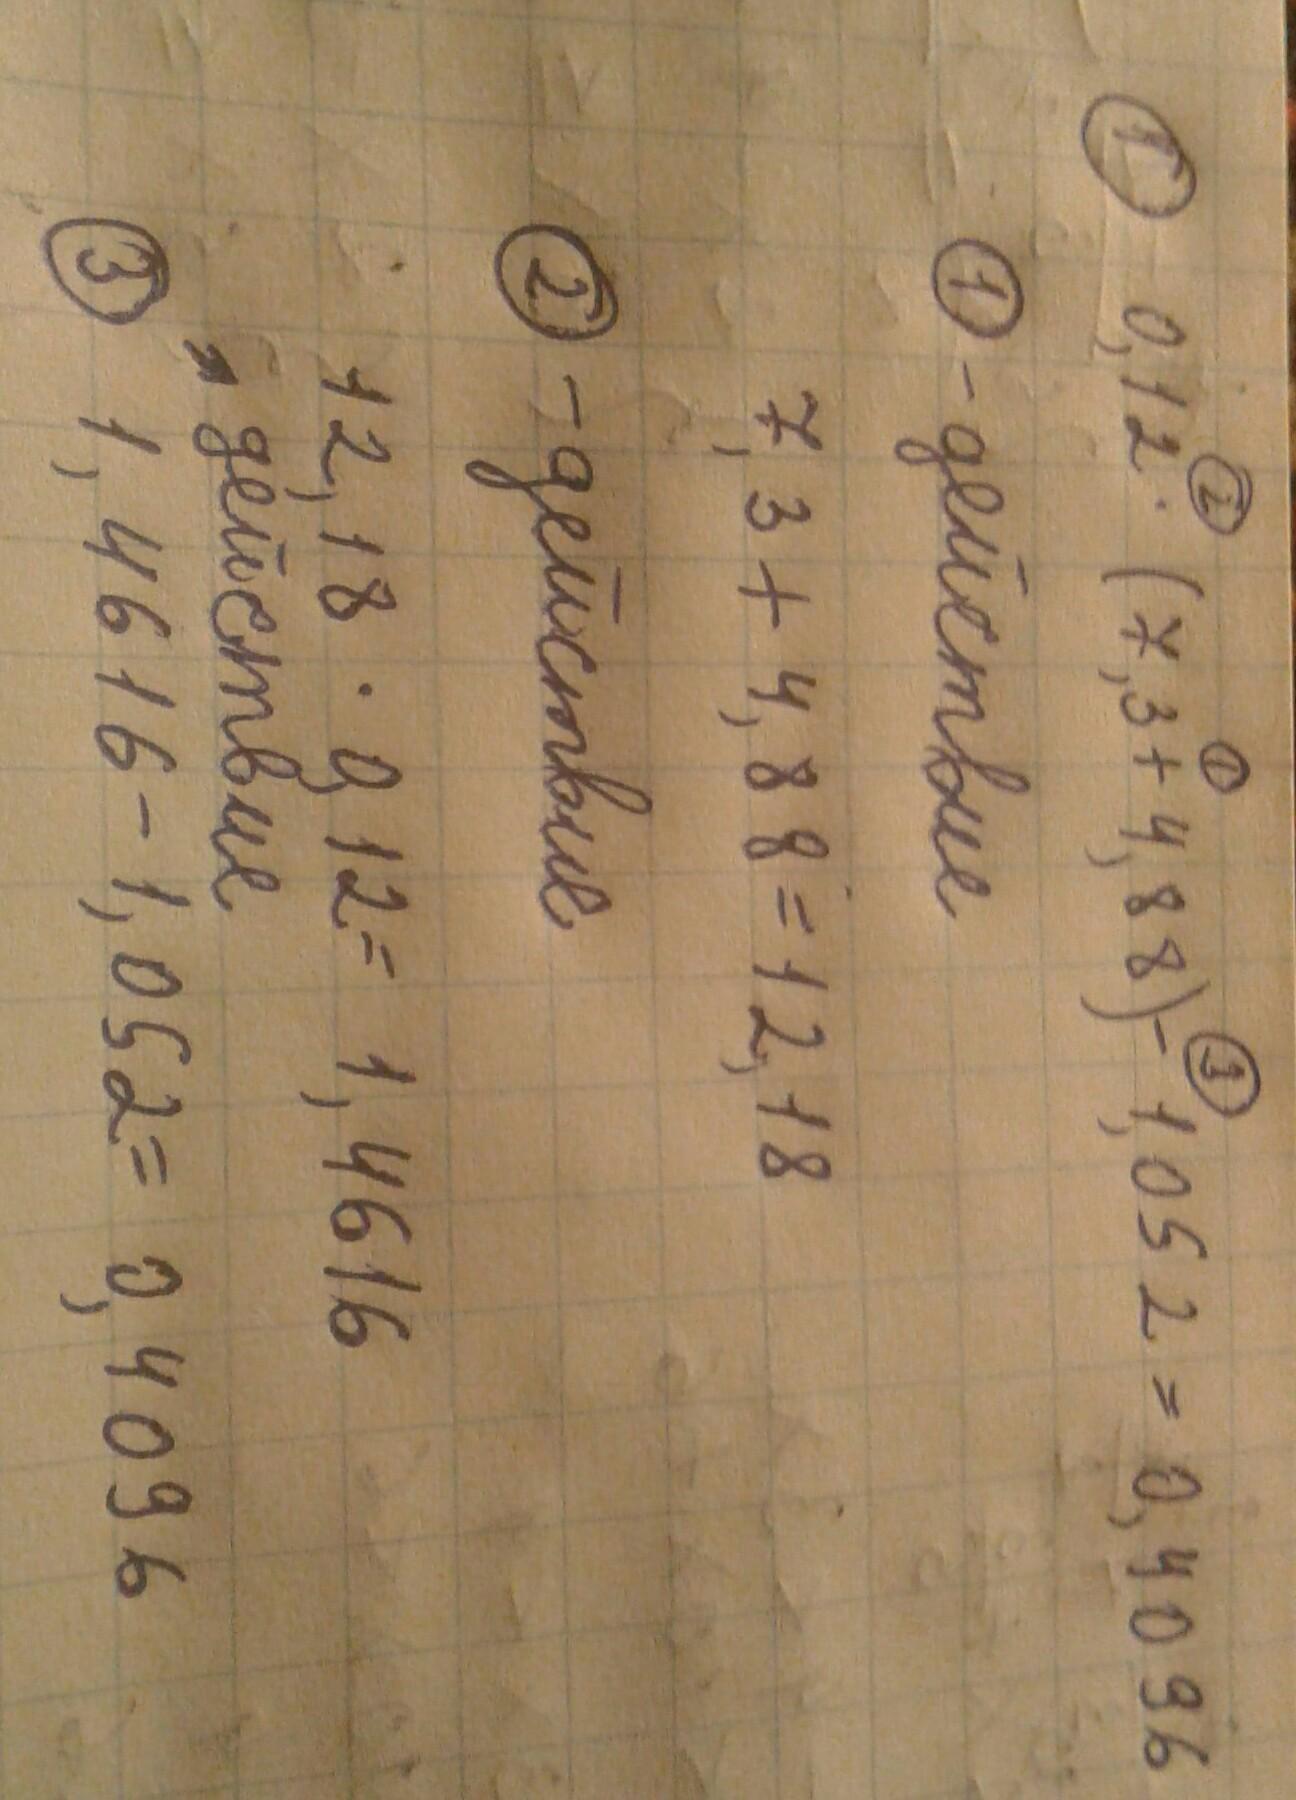 ① 0,12 · (7,3 + 4,88) - 1,052 = 0,4096
② ① ③
① - действие
7,3 + 4,88 = 12,18
② - действие
12,18 · 0,12 = 1,4616
③ действие
1,4616 - 1,052 = 0,4096